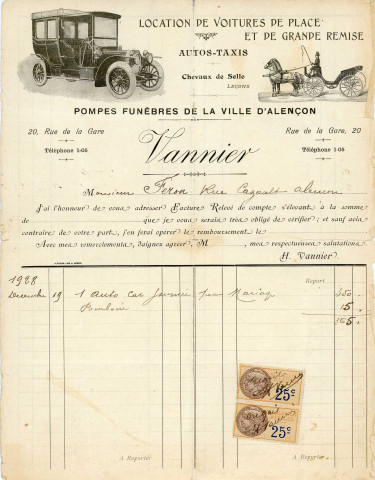 LOCATION DE VOITURES DE PLACE
ET DE GRANDE REMISE
AUTOS-TAXIS
Chevaux de Selle
LEÇONS
POMPES FUNÈBRES DE LA VILLE D'ALENÇON
20, Rue de la Gare
Téléphone 1-05
Vannier
Rue de la Gare, 20
Téléphone 1-05
Monsieur Feron Rue Cazault Alençon
J'ai l'honneur de vous adresser Facture Relevé de compte s'élevant à la somme
de que je vous serais très obligé de vérifier; et sauf avis
contraire de votre part, j'en ferai opérer le remboursement le
Avec mes remerciements, daignez agréer, M , mes respectueuses salutations.
H. Vannier
1928
Report
Decembre 19 1 auto car Journée pour Mariage 350
15
365
25c
25c
A Reporter
A Reporter